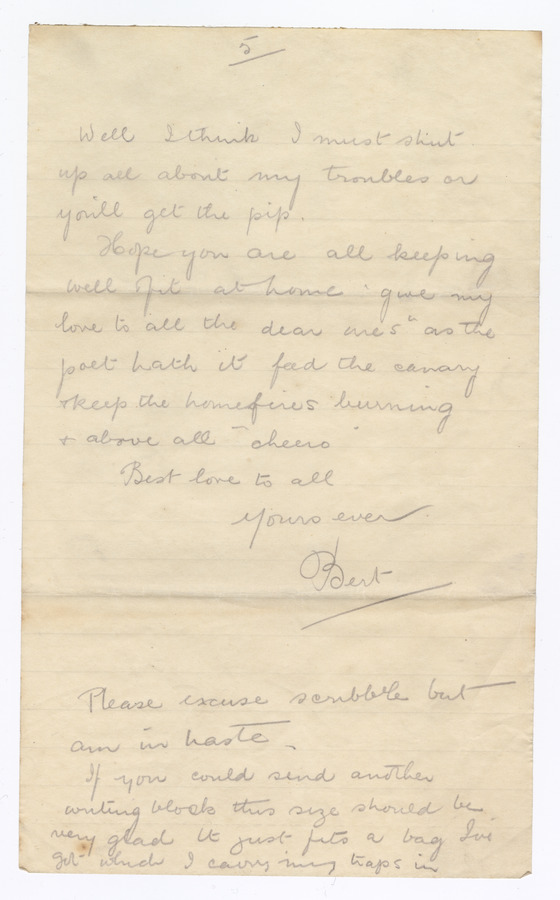 5
Well I think I must shut
up all about my troubles or
you'll get the pip.
Hope you are all keeping
well & fit at home "give my
love to all the dear ones" as the
poet hath it feed the canary
& keep the homefires burning
& above all "cheero"
Best love to all
Yours ever
Bert
Please excuse scribble but
am in haste.
If you could send another
writing block this size should be
very glad it just fits a bag I've
got which I carry my traps in